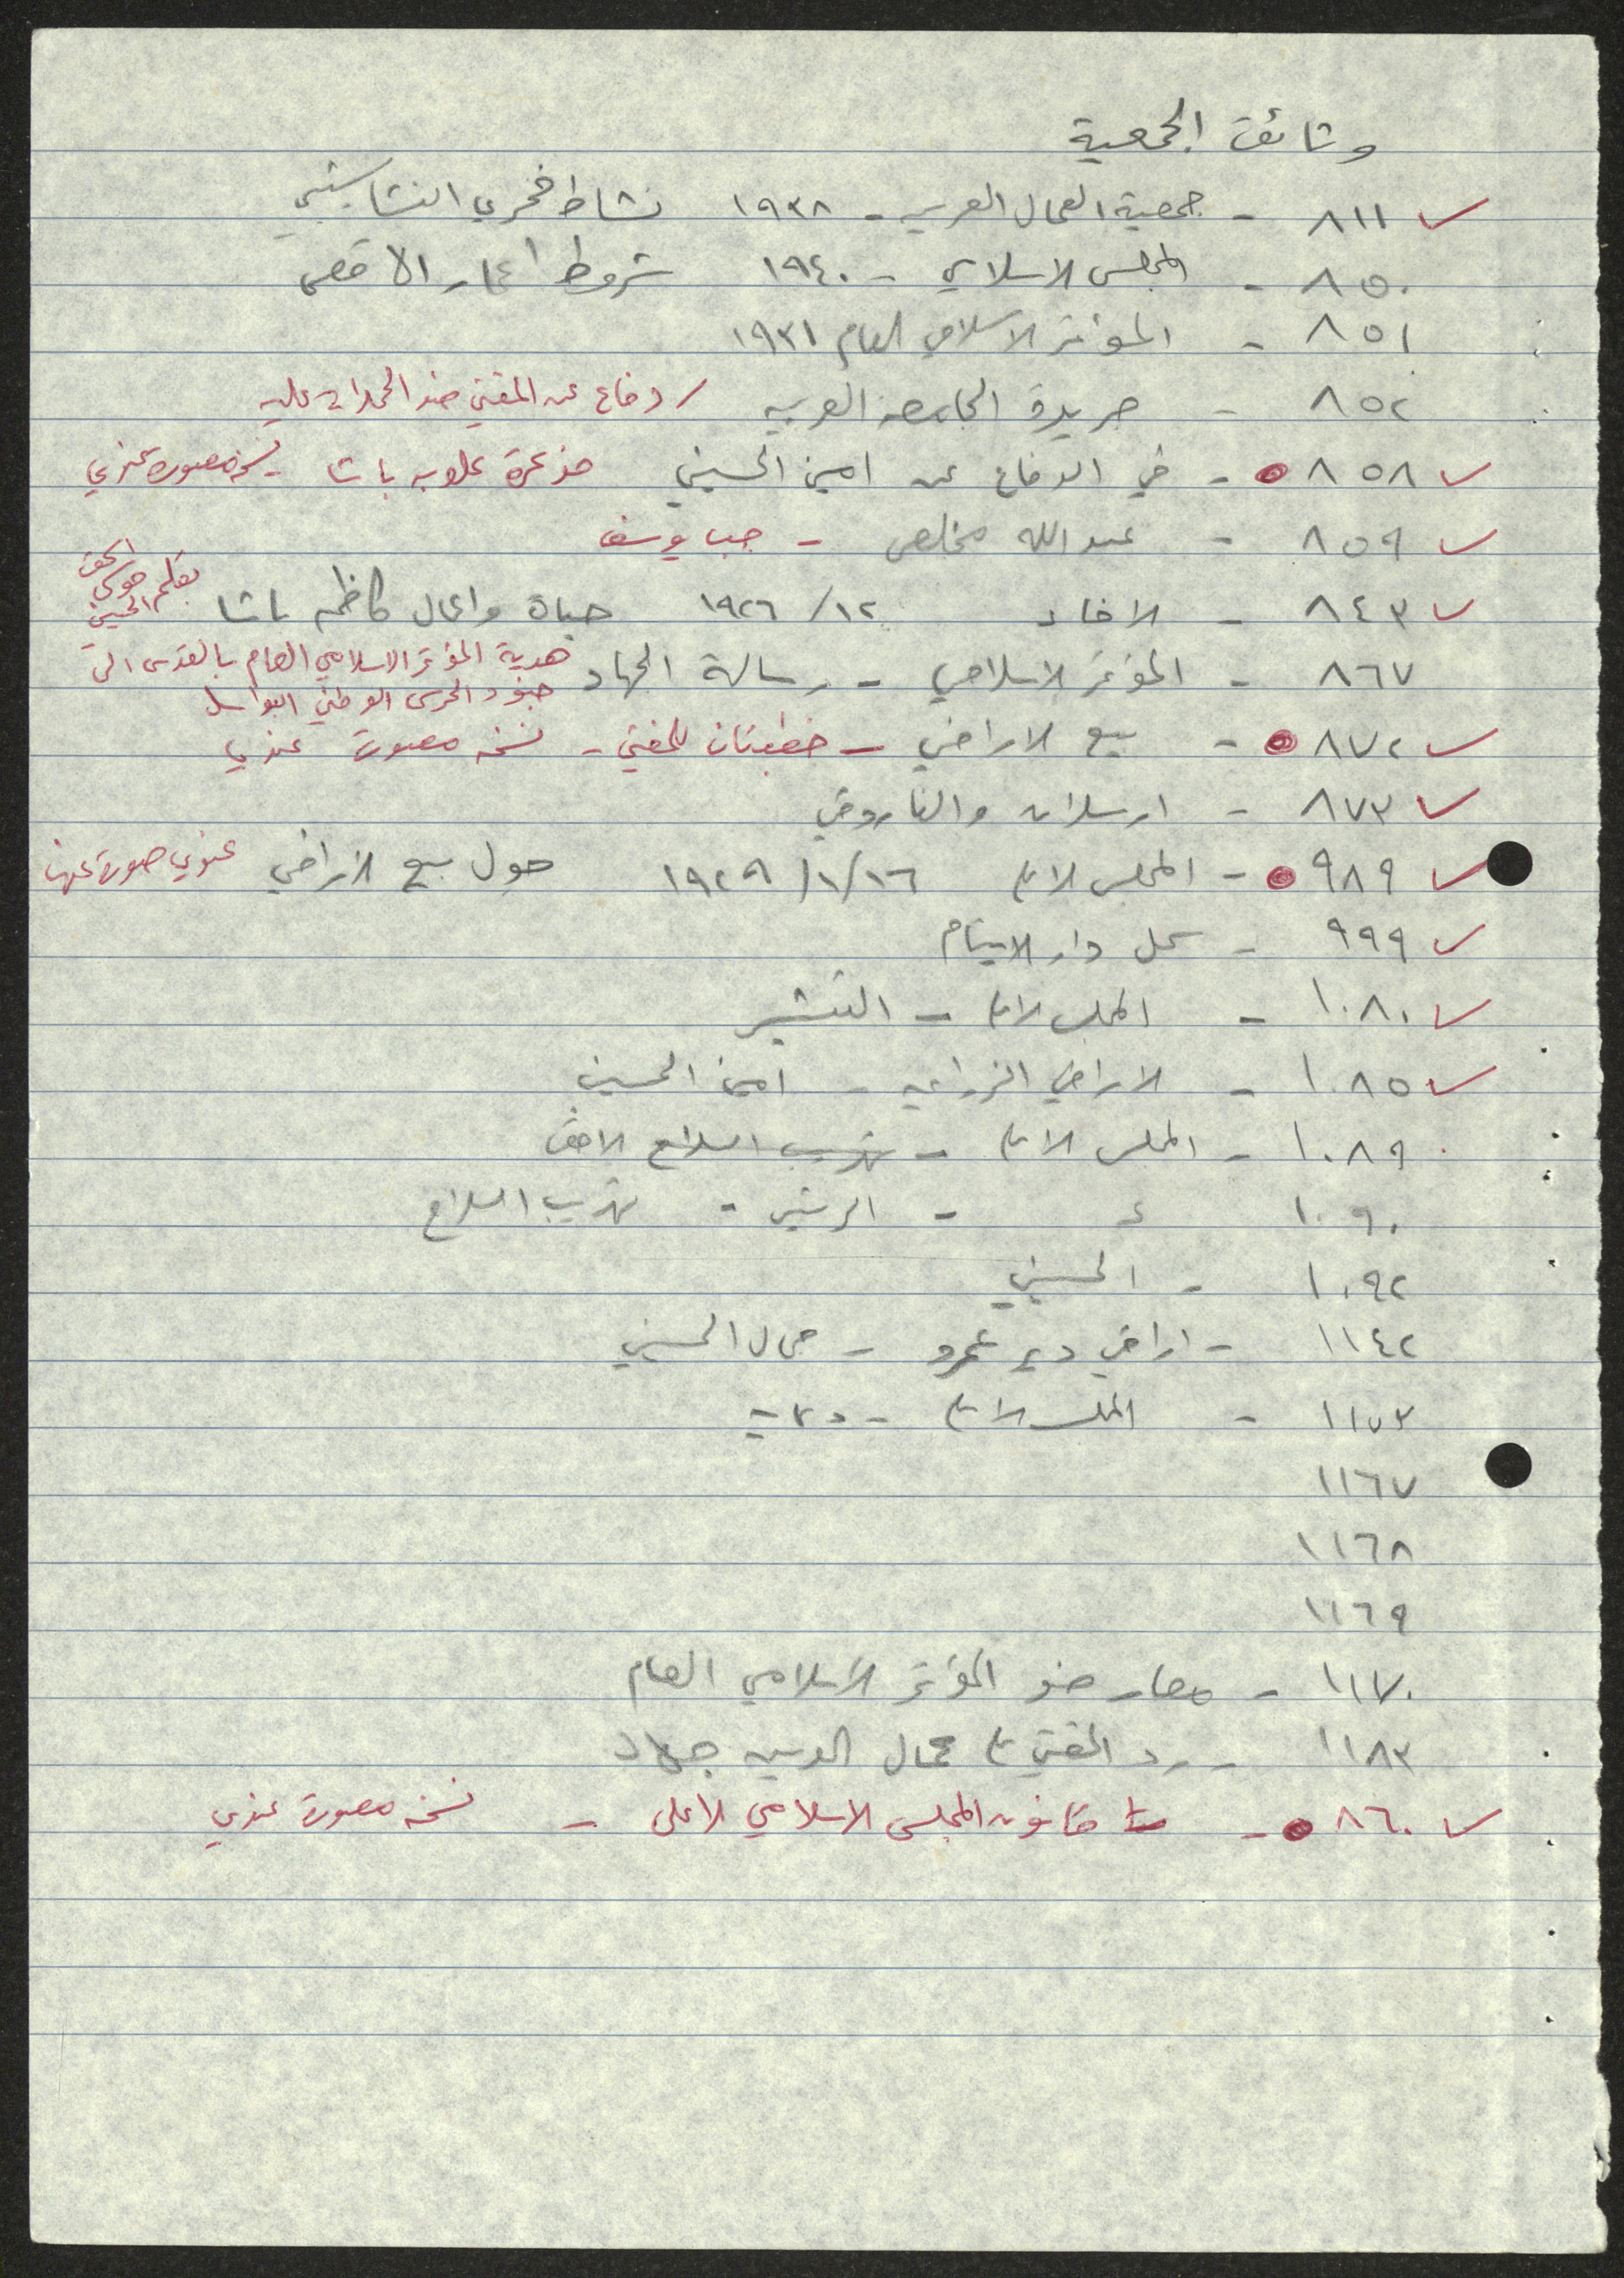 وثائق الجمعية
٨١١ - جمعية العمال العربيه - ١٩٣٨ نشاط فخري النشاشيبي
٨٥٠ - المجلس الاسلامي - ١٩٤٠ شروط اعمار الاقصى
٨٥١ - المؤتمر الاسلامي العام ١٩٣١
٨٥٢ - جريدة الجامعه العربيه / دفاع عن المفتي ضد الحملات عليه
٨٥٨ - في الدفاع عن امين الحسيني علوبه باشا - نسخه مصورة عندي
٨٥٩ - عبدالله مخلص -
٨٤٣ - الاخاء ١٢/ ١٩٢٦ حياة واعمال كاظم باشا بقلم اسحق موسى الحسيني
٨٦٧ - المؤتمر الاسلامي - رسالة الجهاد هدية المؤتمر الاسلامي العام بالقدس الى
جنود الحرس الوطني البواسل
٨٧٢ - بيع الاراضي - خطبتان للمفتي - نسخه مصورة عندي
٨٧٣ - ارسلان والفاروقي
٩٨٩ - المجلس الاعلى ١٦/١/١٩٢٩ حول بيع الاراضي عندي صورة عنها
٩٩٩ - سجل دار الايتام
١٠٨٠ - المجلس الاعلى - التبشير
١٠٨٥ - الاراضي الزراعيه - امين الحسيني
١٠٨٩ - المجلس الاعلى - تهريب السلاح
١٠٩٠ - - تهريب السلاح
١٠٩٢ - الحسيني
١١٤٢ - اراضي دير عمرو - جمال الحسيني
- المجلس الاعلى -
١١٦٧
١١٦٨
١١٦٩
١١٧٠ - معارضو المؤتمر الاسلامي العام
١١٨٣ - رد المفتي على جمال الدين
٨٦٠ - قانون المجلس الاسلامي الاعلى - نسخه مصورة عندي